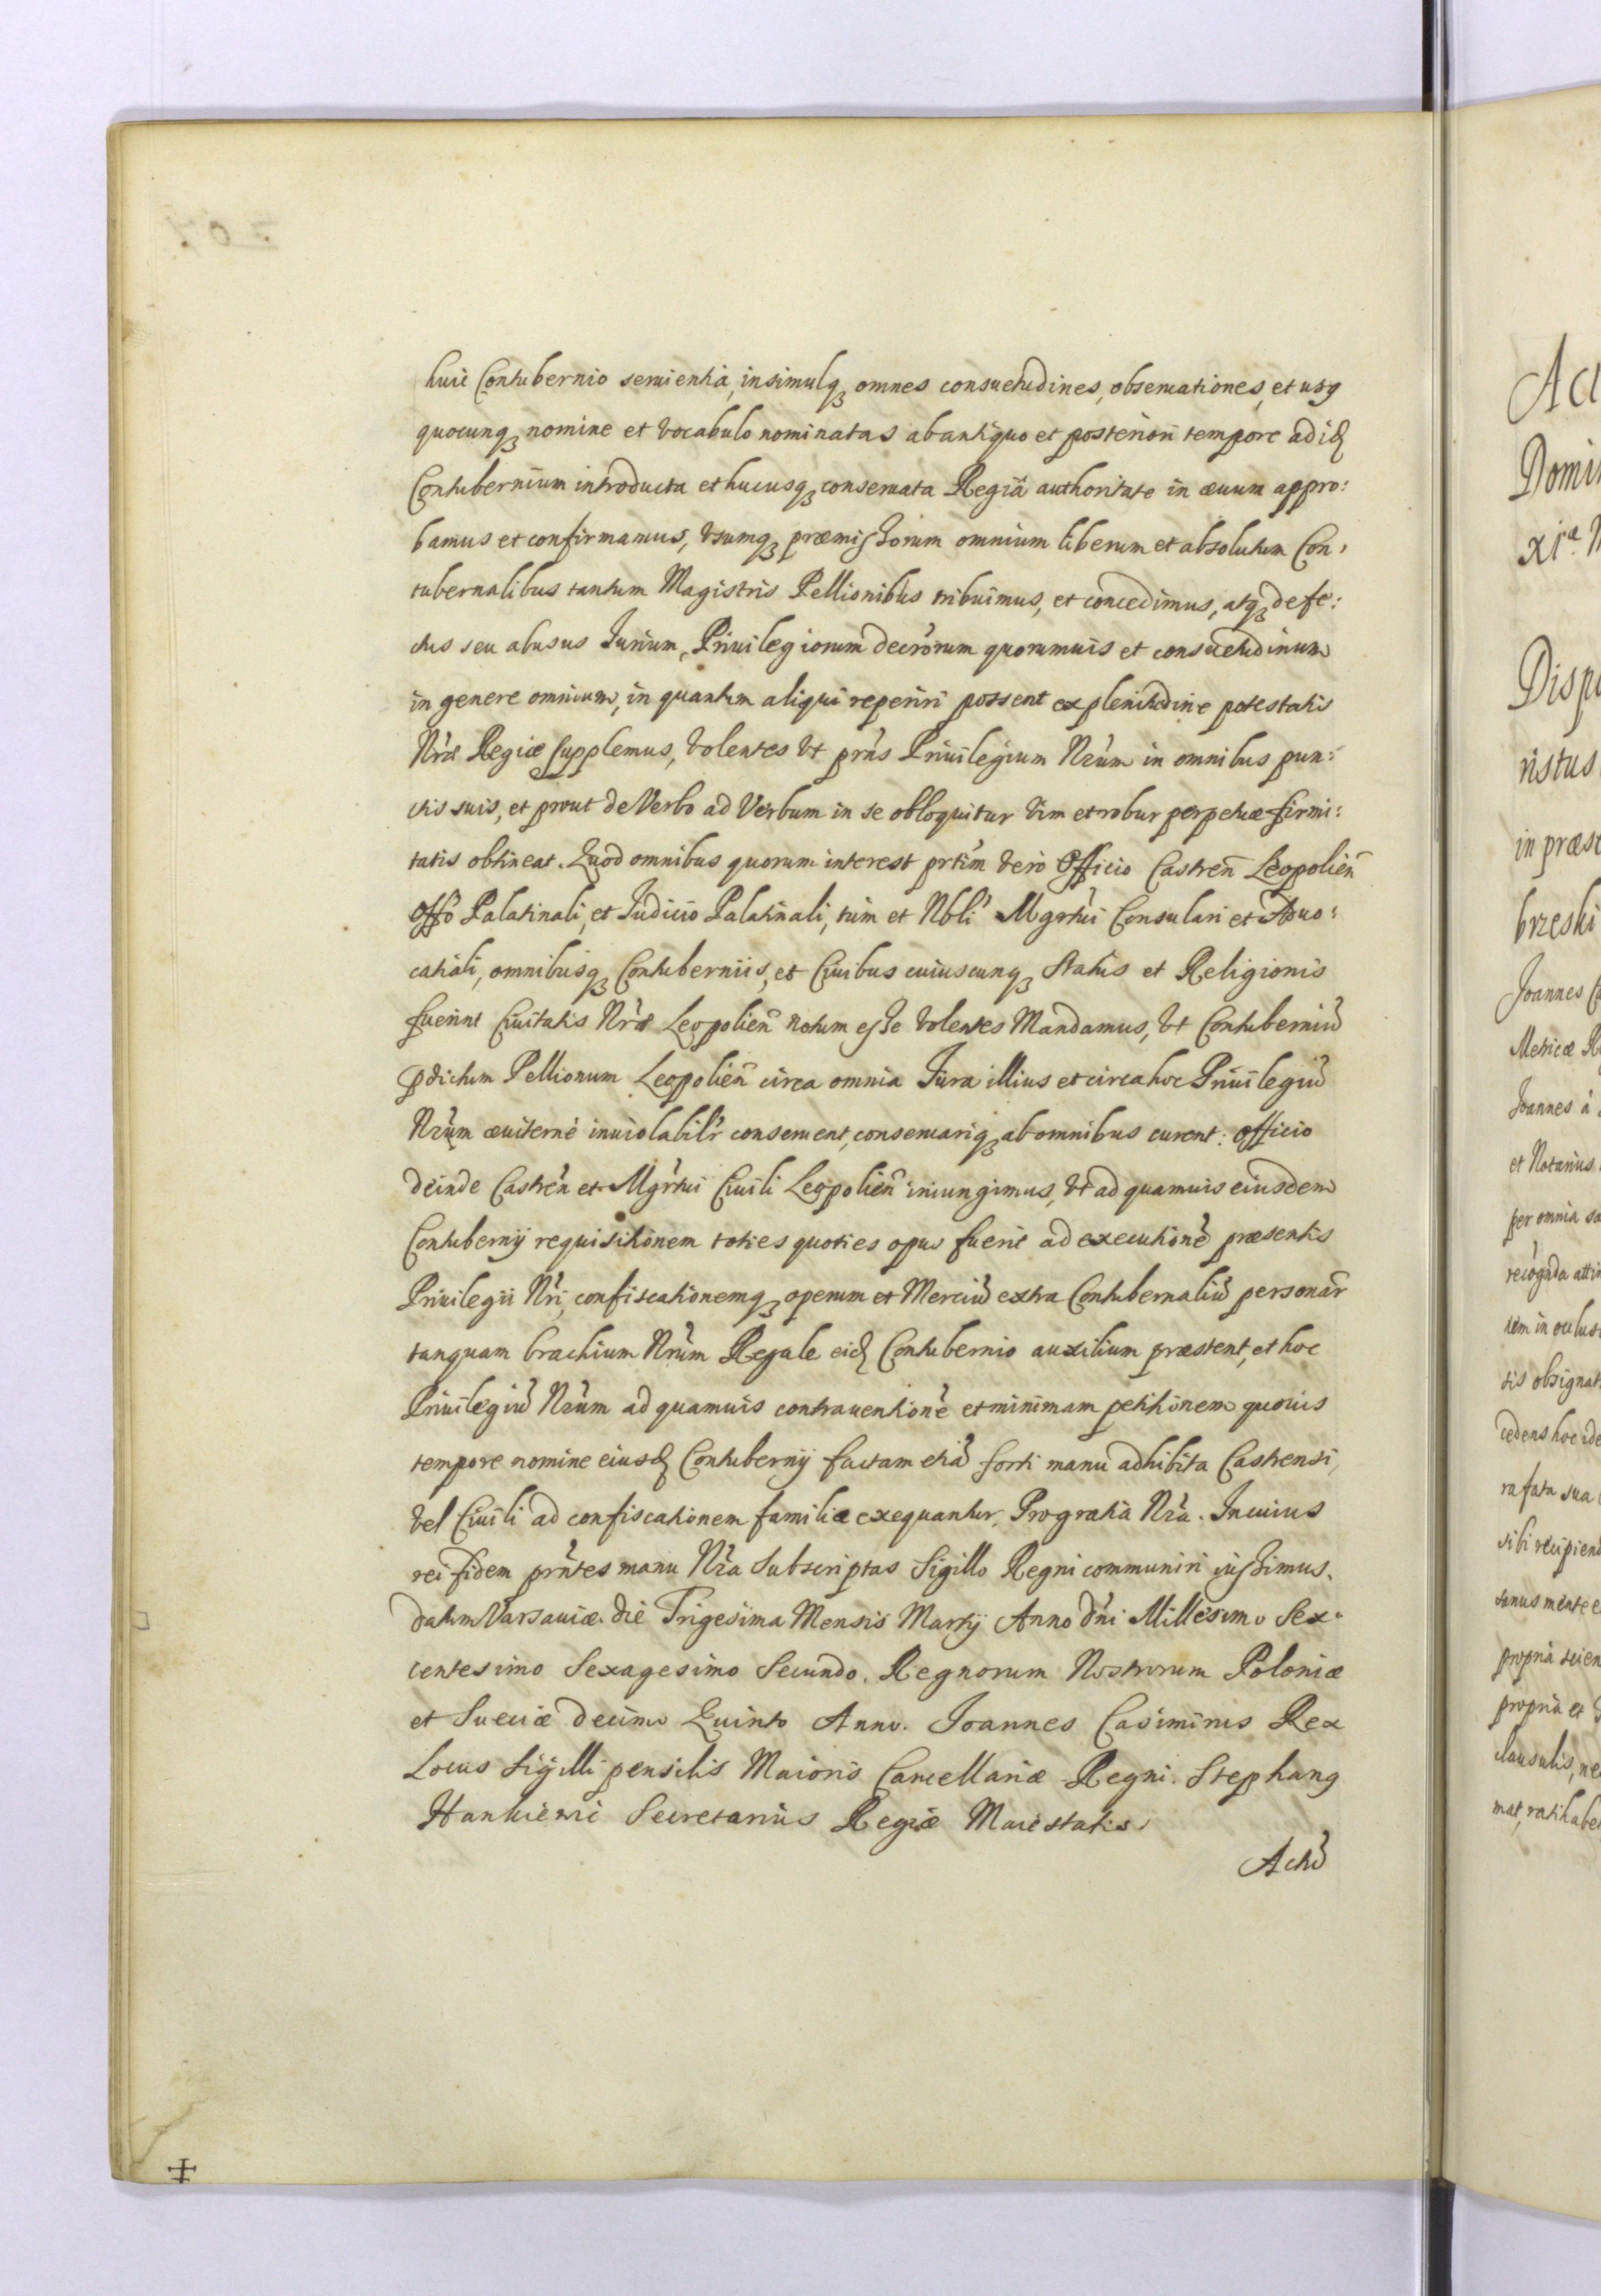 huic Contubernio seruientia, insimulq₃ omnes consuetudines, obseruationes, et usq
quocunq₃ nomine et vocabulo nominatas ab antiquo et posteriori tempore ad id
Contubernium introducta et hucusq₃ conseruata Regiâ authoritate in æuum appro:
bamus et confirmamus, vsumq₃ præmissorum omnium liberum et absolutum Con,
tubernalibus tantum Magistris Pellionibus tribuimus, et concedimus, atq₃ defe:
ctus seu abusus Iurium, Priuilegiorum decrorum quorumuis et consuetudinum
in genere omnium, in quantum aliqui reperiri possent ex plenitudine potestatis
Nræ Regiæ supplemus, volentes vt prñs Priuilegium Nrũm in omnibus pun:
ctis suis, et prout de Verbo ad Verbum in se obloquitur vim et robur perpetuæ firmi:
tatis obtineat. Quod omnibus quorum interest prtim vero Officio Castreñ Leopolieñ
Offo Palatinali, et Iudicio Palatinali, tum et Nbli Mgrtui Consulari et Aduo:
catiali, omnibusq₃ Contuberniis, et Ciuibus cuiuscunq₃ status et Religionis
fuerint Ciuitatis Nræ Leopolieñ notum esse volentes Mandamus, vt Contuberniũ
pdictum Pellionum Leopolieñ circa omnia Iura illius et circa hoc Priuilegiũ
Nrũm æuiterne inuiolabilr conseruent, conseruariq₃ ab omnibus curent: officio
deinde Castreñ et Mgrtui Ciuili Leopolieñ iniungimus, vt ad quamuis eiusdem
Contubernÿ requisitionem toties quoties opus fuerit ad executionẽ præsentis
Priuilegii Nri, confiscationemq₃ operum et Merciũ extra Contubernaliũ personar
tanquam brachium Nrũm Regale eid Contubernio auxilium præstent, et hoc
Priuilegiũ Nrũm ad quamuis contrauentionẽ et minimam petitionem quouis
tempore nomine eiusd Contubernÿ factam etiã forti manu adhibita Castrensi,
vel Ciuili ad confiscationem familiæ exequantur. Pro gratia Nra. In cuius
rei fidem prñtes manu Nra Subscriptas Sigillo Regni communiri iussimus.
datum Varsauiæ die Trigesima Mensis Martÿ Anno dni Millesimo Sex-
centesimo Sexagesimo Secundo. Regnorum Nostrorum Poloniæ
et Sueciæ decimo Quinto Anno. Joannes Casimirus Rex
Locus Sigilli pensilis Maioris Cancellariæ Regni. Stephanq
Hankiewic Secretarius Regiæ Maiestatis.
Actũ
207
Act
Domi
xiᵃ. M
Disp
ristus
in præs
brzeski
Joannes
Metricæ R
Joannes à
et Notarius
per omnia sa
recognda atti
tem in
tis obsignat
cedens hoc ide
rafata sua
sibi recipien
sanus mente e
propria scien
propria et
clausulis, ne
mat, ratihabe